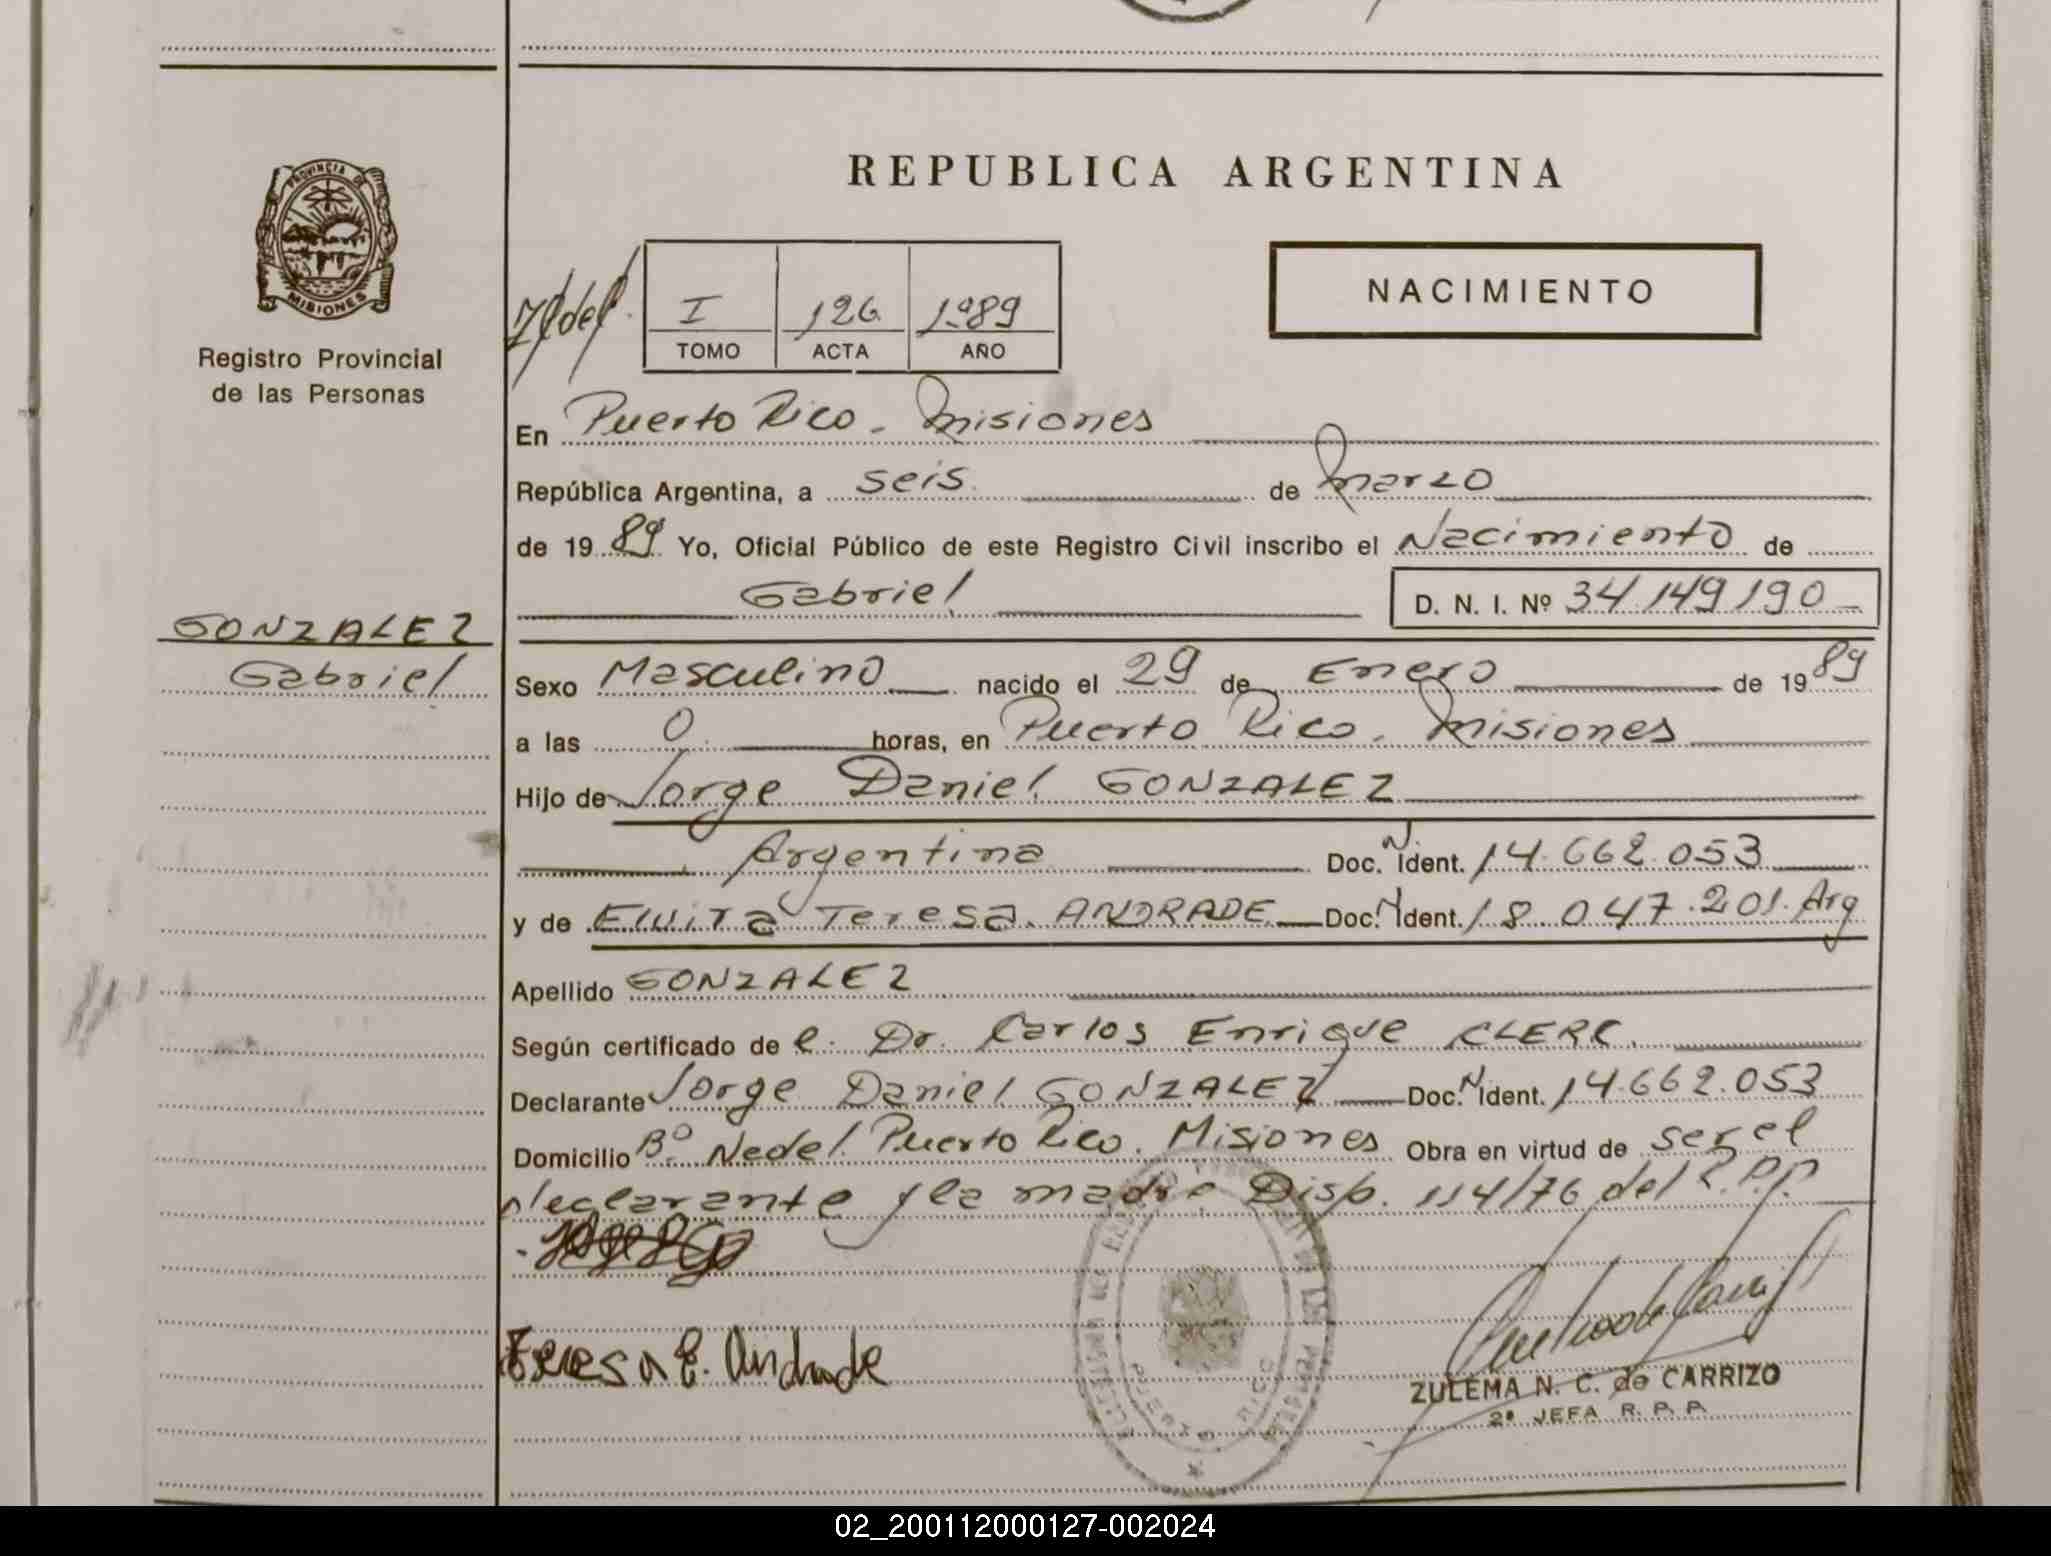 REPUBLICA ARGENTINA
PROVINCIA DE
MISIONES
Registro Provincial
de las Personas
NACIMIENTO
I 126 1989
TOMO ACTA AÑO
En Puerto Rico. Misiones
República Argentina, a seis de Marzo
de 19 89 Yo, Oficial Público de este Registro Civil inscribo el Nacimiento de
Gabriel D. N. I. Nº 34/149/190
GONZALEZ
Gabriel
Sexo Masculino nacido el 29 de Enero de 19 89
a las 0 horas, en Puerto Rico. Misiones
Hijo de Jorge Daniel GONZALEZ
Argentina Doc. N Ident. 14.662.053
y de Elvira Teresa ANDRADE Doc. N Ident. 18.047.201. Arg
Apellido GONZALEZ
Según certificado de l. Dr. Carlos Enrique CLERC.
Declarante Jorge Daniel GONZALEZ Doc. N Ident. 14.662.053
Domicilio Bº Nedel. Puerto Rico. Misiones Obra en virtud de ser el
declarante y la madre Disp. 114/76 del R.P.P.
Teresa E. Andrade
ZULEMA N. C. de CARRIZO
2ª JEFA R. P. P.
PUERTO RICO
02_200112000127-002024